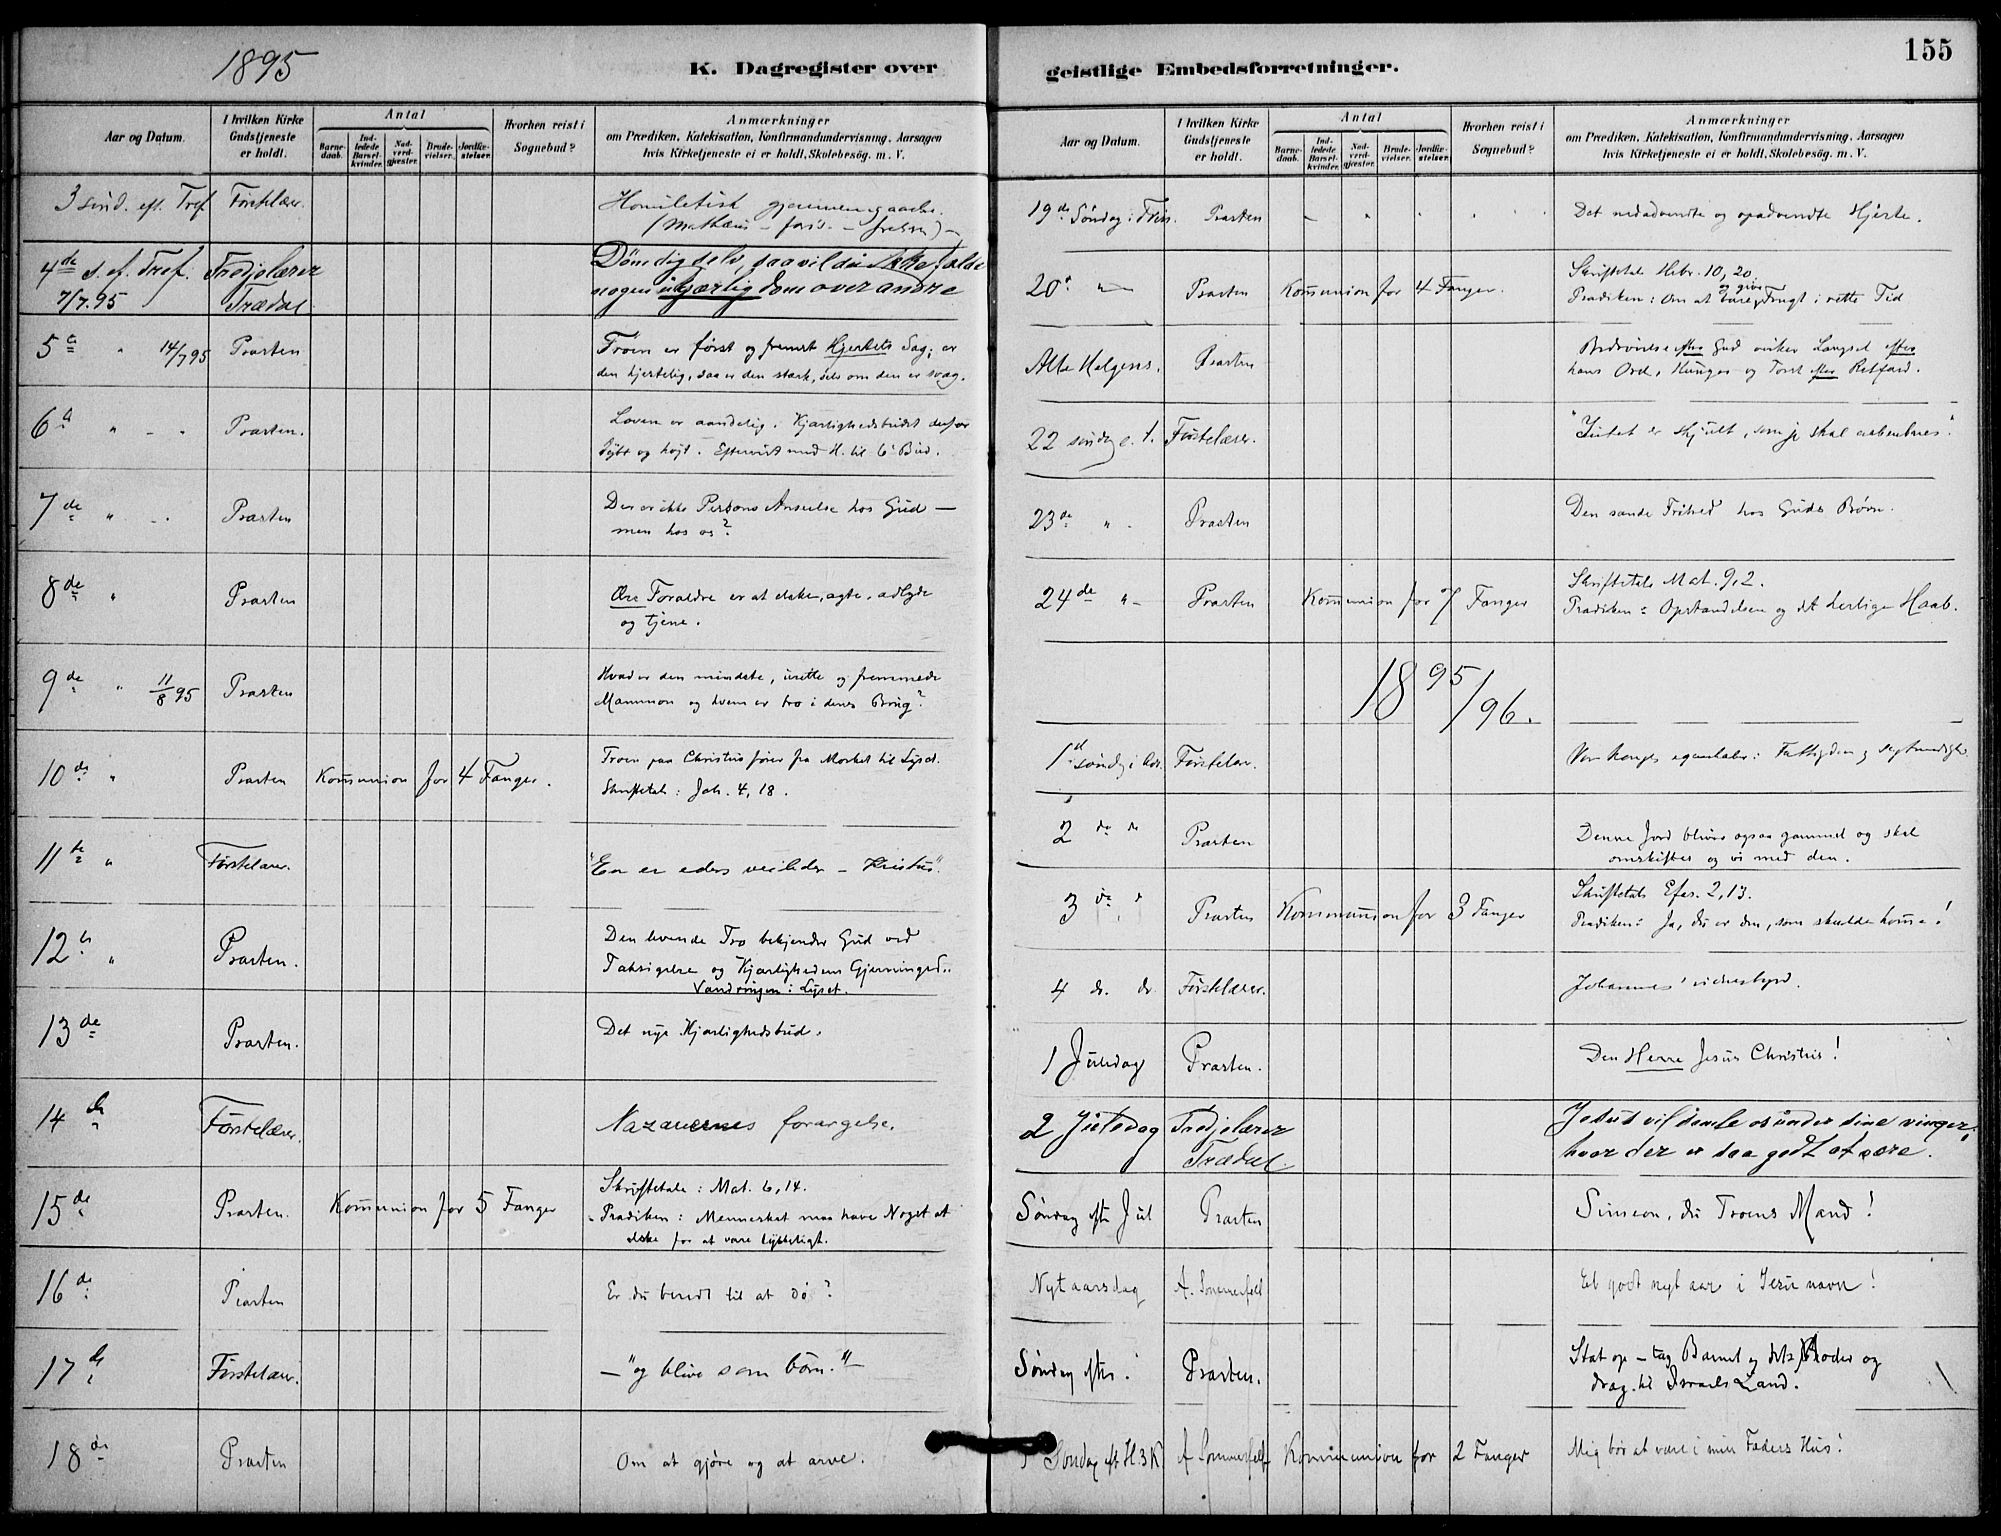 1895
K. Dagregister over
Aar og Datum.
I hvilken Kirke Gudstjeneste er holdt.
Antal
Barne-daab.
Ind-ledede Barsel-kvinder.
Nad-verd-gjæster.
Brude-vielser.
Jordfæ-stelser.
Hvorhen reist i Sognebud?
Anmærkninger
om Prædiken, Katekisation, Konfirmandundervisning, Aarsagen
hvis Kirketjeneste ei er holdt, Skolebesøg. m. V.
3 sønd. eft. Tref. Førstelær. Homiletisk gjennemgaaelse.
4de s. ef. Tref. Tredjelærer Døm dig selv, saa vil du ikke falde
7/7.95 Trædal nogen ukjærlig dom over andre
5te " 14/7 95 Præsten Troen er først og fremst Hjertets Sag; er
den hjertelig, saa er den stærk, selv om den er svag.
6te " - " Præsten. Loven er aandelig. Kjærlighedsbudet derfor
dybt og højt. til 6te Bud.
7de " - . Præsten Der er ikke Persons Anseelse hos Gud —
men hos os?
8de " Præsten Ære Forældre er at elske, agte, adlyde
og tjene.
9de " 11/8 95 Præsten Hvad er den mindste, urette og fremmede
Mammon og hvem er tro i denes Brug?
10de " Præsten Kommunion for 4 Fanger. Troen paa Christus fører fra Mørket til Lyset.
Skriftetale: Joh. 4, 18.
11te " Førstelærer. "En er eders veileder - Kristus".
12te " Præsten. Den levende Tro bekjender Gud ved
Taksigelse og Kjærlighedens Gjerninger..
Vandringen i Lyset.
13de Præsten. Det nye Kjærlighedsbud.
14de Førstelærer. Nazaræernes forargelse.
15de Præsten. Kommunion for 5 Fanger Skriftetale: Mat. 6, 14.
Prædiken: Mennesket maa have Noget at
elske for at være lykkeligt.
16de Præsten Er du beredt til at dø?
17de Førstelærer. — "og blive som børn." —
18de Præsten Om at gjøre og at arve.
155
geistlige Embedsforretninger.
Aar og Datum.
I hvilken Kirke Gudstjeneste er holdt.
Antal
Barne-daab.
Ind-ledede Barsel-kvinder.
Nad-verd-gjæster.
Brude-vielser.
Jordfæ-stelser.
Hvorhen reist i Sognebud?
Anmærkninger
om Prædiken, Katekisation, Konfirmandundervisning, Aarsagen
hvis Kirketjeneste ei er holdt, Skolebesøg. m. V.
19de Søndag i Præsten Det nedadvendte og opadvendte Hjerte.
20de " Præsten Kommunion for 4 Fanger. Skriftetale Hebr. 10, 20.
Prædiken: Om at bære og give Frugt i rette Tid
Alle Helgens. Præsten Bedrøvelse efter Gud virker Længsel efter
hans Ord, Hunger og Tørst efter Retfærd.
22 søndag e. t. Førstelærer. "Intet er skjult, som jo skal aabenbares".
23de " . Præsten Den sande Frihed hos Guds Børn.
24de " - Præsten Kommunion for 7 Fanger Skriftetale Mat. 9, 2.
Prædiken: Opstandelsen og det herlige Haab.
1895/96.
1ste søndag i Adv. Førstelær. Vor Konges egenskaber: Fattigdom og sagtmodighed.
2 de do Præsten Denne Jord bliver ogsaa gammel og skal
omskiftes og vi med den.
3 de Præsten Kommunion for 3 Fanger Skriftetale Efes. 2, 13.
Prædiken: Ja, du er den, som skulde komme!
4 do. do. Førstelærer. Johannes' vidnesbyrd.
1 Juledag Præsten. Den Herre Jesus Christus!
2 Juledag Tredjelærer Jesus vil samle os under sine vinger,
Trædal hvor der er saa godt at være.
Søndag efter Jul Præsten Simeon, du Troens Mand!
Nytaarsdag A. Sommerfelt Et godt nyt aar i Jesu navn!
Søndag efter. Præsten. Stat op - tag Barnet og dets Moder og
drag til Israels Land.
1 Søndag eft. H.3.K. A Sommerfelt Kommunion for 2 Fanger Mig bør at være i min Faders Hus!